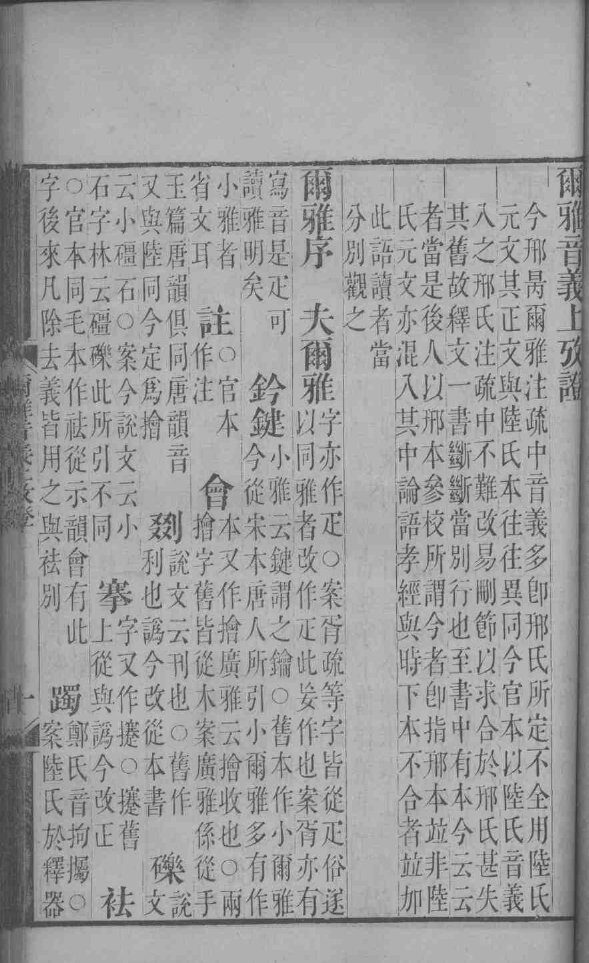 爾雅音義上攷證
今邢昺爾雅注疏中音義多卽邢氏所定不全用陸氏
元文其正文與陸氏本往往異同今官本以陸氏音義
入之邢氏注疏中不難改易刪節以求合於邢氏甚失
其舊故釋文一書斷斷當別行也至書中有本今云云
者當是後人以邢本參校所謂今者卽指邢本竝非陸
氏元文亦混入其中論語孝經與時下本不合者竝加
此語讀者當
分別觀之
爾雅序 夫爾雅
字亦作疋○案胥疏等字皆從疋俗遂
以同雅者改作疋此妄作也案胥亦有
寫音是疋可
讀雅明矣
鈐鍵
小雅云鍵謂之鑰○舊本作小爾雅
今從宋本唐人所引小爾雅多有作
小雅者
省文耳
註
○官本
作注
會
本又作㩓廣雅云㩓收也○兩
㩓字舊皆從木案廣雅係從手
玉篇唐韻俱同唐韻音
又與陸同今定爲㩓
剟
說文云刊也○舊作
利也譌今改從本書
礫
說
文
云小礓石○案今說文云小
石字林云礓礫此所引不同
搴
字又作攓○攓舊
上從與譌今改正
袪
○官本同毛本作祛從示韻會有此
字後來凡除去義皆用之與袪別
躅
鄭氏音拘欘○
案陸氏於釋器